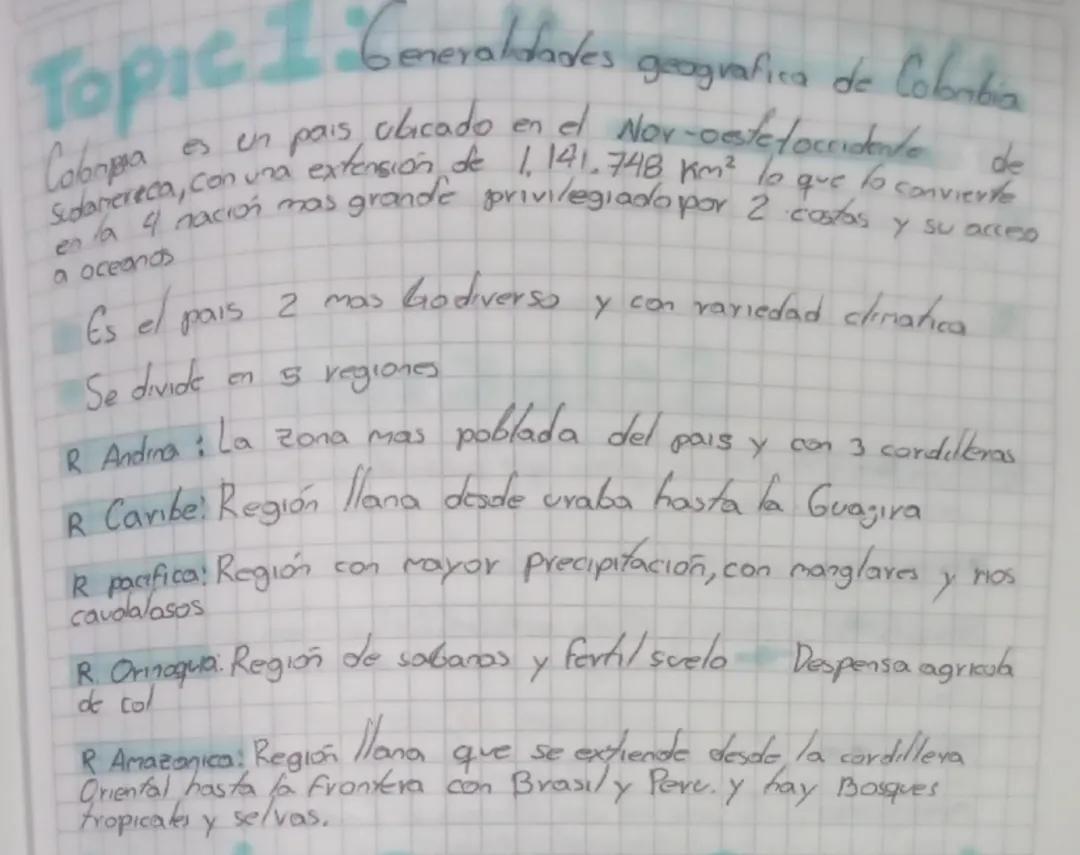 Topic 1: Generalidades geografica de Colombia
Colombia es un pais ubicado en el Nor-oeste/occidente de
sudamereca, con una extensión de 1,141.748 Km² lo que lo convierte
en la 4 nación mas grande privilegiado por 2 costas y su acceso
a oceanos
Es el pais 2 mas biodiverso y con variedad climatica
Se divide en 5 regiones
R Andina: La zona mas poblada del pais y con 3 cordilleras
R Caribe: Región llana desde uraba hasta la Guagira
R pacifica: Región con mayor precipitación, con manglares y rios
caudalasos
R. Orinoquia: Región de sabanas y fertil suelo Despensa agricola
de col
R Amazonica: Región llana que se extiende desde la cordillera
Oriental hasta la frontera con Brasil y Peru. y hay Bosques
tropicales y selvas.